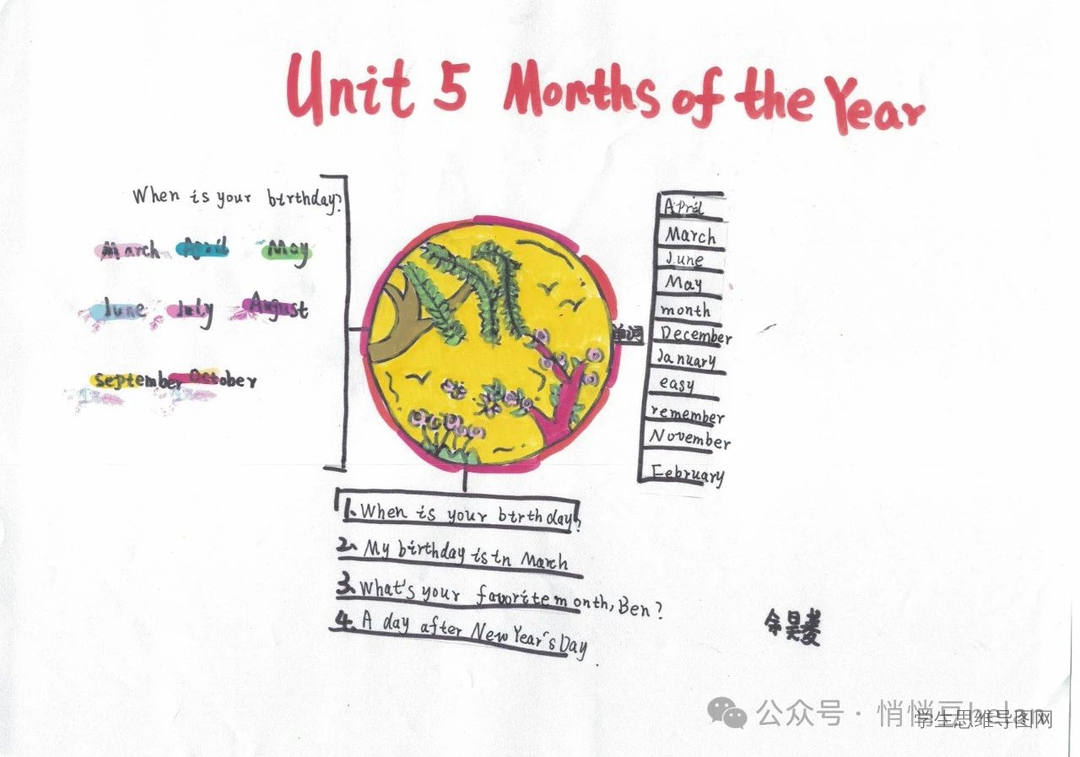 Unit 5 Months of the Year
When is your birthday?
March April May
June July August
September October
单词
April
March
June
May
month
December
January
easy
remember
November
February
1. When is your birthday?
2. My birthday is in March
3. What's your favorite month, Ben?
4. A day after New Year's Day.
公众号 · 悄悄豆
学生思维导图网